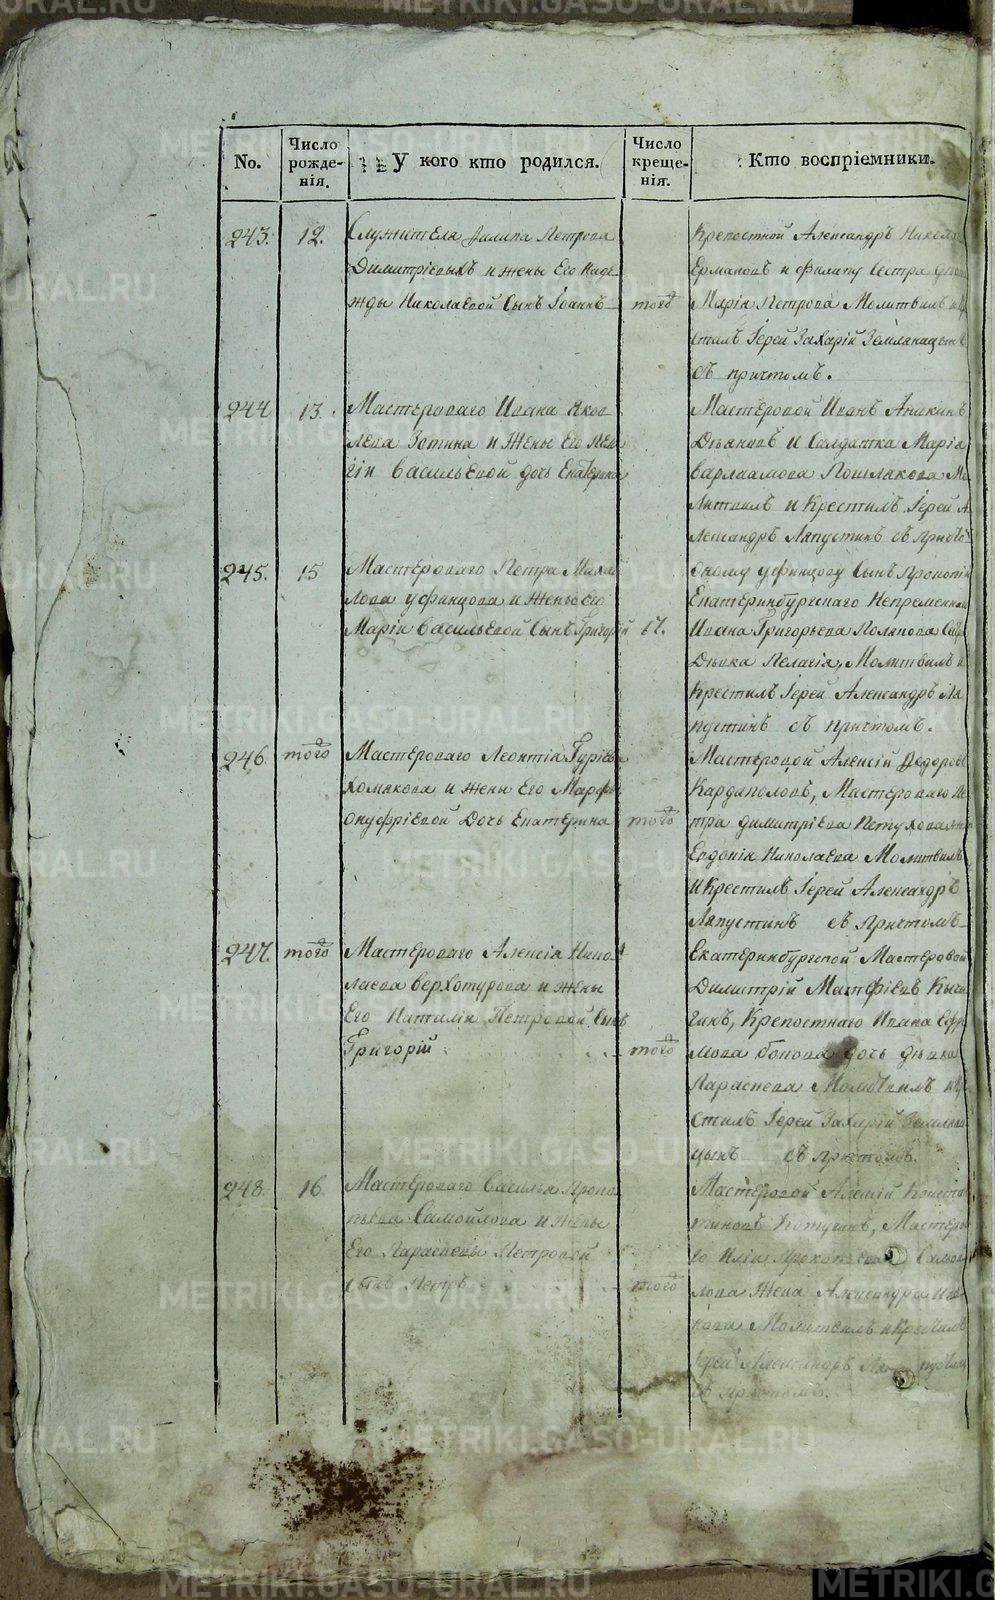 No.
Число рожде-нія.
У кого кто родился.
Число креще-нія.
Кто воспріемники.
243.
12.
Служителя Филипа Петрова
Димитріевыхъ и жены Его Наде-
жды Николаевой Сынъ Іоаннъ
того
Крепостной Александръ
Ермаковъ и филипу Сестра
Марія Петрова Молитвилъ и
стилъ Іерей Захарій Земляницынъ
съ причтомъ.
244
13.
Мастероваго Ивана Яков
лева Зотина и Жены Его
гіи Васильевой дочь Екатерина
Мастеровой Иванъ Аникинъ
и Салдатка Марія
Варлаамова Пошлякова Мо
литвилъ и Крестилъ Іерей А
лександръ Ляпустинъ съ
245.
15
Мастероваго Петра Михай
лова уфинцова и Жены Его
Маріи Васильевой Сынъ Григорій
17.
уфинцову Сынъ Прокопій
Екатеринбургскаго Непременнаго
Ивана Григорьева Полякова
Девка Пелагія, Молитвилъ и
Крестилъ Іерей Александръ Ля
пустинъ съ причтомъ.
246.
того
Мастероваго Леонтія Гуріева
Хомякова и жены Его Марфы
онуфріевой Дочь Екатерина
того
Мастеровой Алексій Федоровъ
Кардаполовъ, Мастероваго Пе
тра димитріева Петухова
Евдокія Николаева Молитвилъ
и Крестилъ Іерей Александръ
Ляпустинъ съ Причтомъ
247.
того
Мастероваго Алексія Нико
лаева Верхотурова и жены
Его Наталіи Петровой Сынъ
Григорій
того
Екатеринбургской Мастеровой
Димитрій Матфіевъ
гинъ, Крепостнаго Ивана Ефре
мова дочь девка
Параскева Молитвилъ
стилъ Іерей Захарій Земляни
цынъ съ Причтомъ.
248.
16.
Мастероваго Василья Проко
пьева Самойлова и Жены
Его Параскевы Петровой
сынъ Петръ
того
Мастеровой Алексій Конста
тиновъ Мастерова
го Иліи Прокопьева Самой
лова Жена Александра
Молитвилъ и Крестилъ
Іерей Александръ Ляпустинъ
съ причтомъ.
METRIKI.GASO-URAL.RU